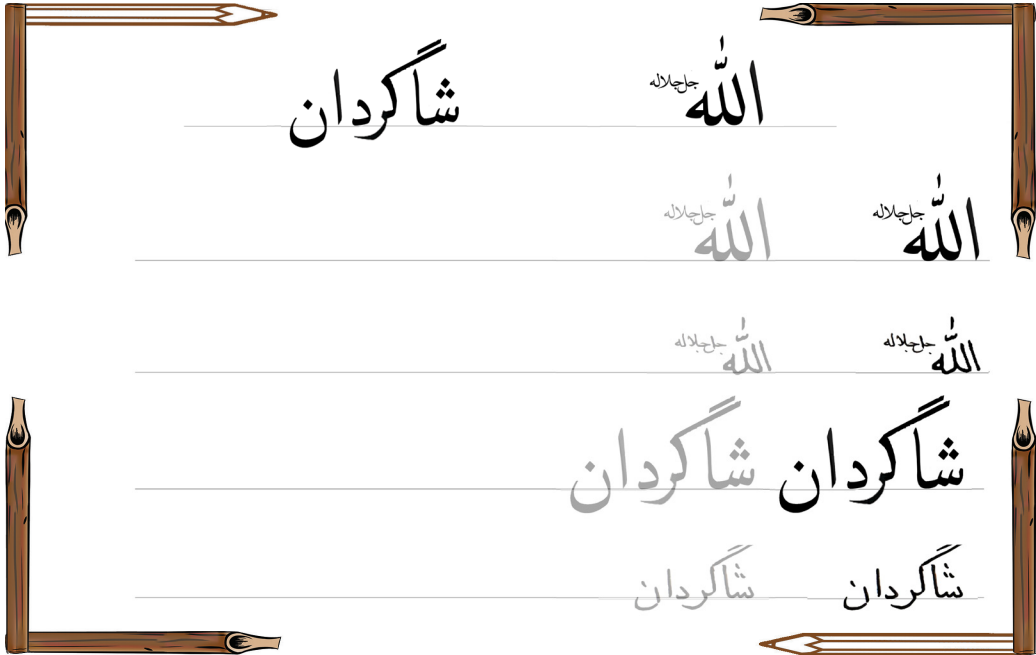 الله جل جلاله شاگردان
الله جل جلاله الله جل جلاله
الله جل جلاله الله جل جلاله
شاگردان شاگردان
شاگردان شاگردان